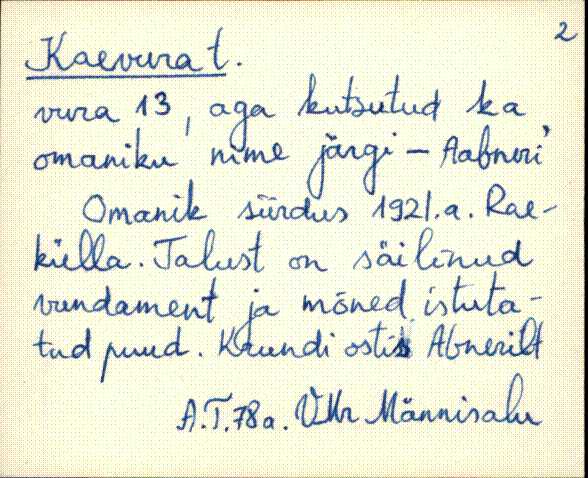 2
Kaevura t.
vura 13, aga kutsutud ka
omaniku nime järgi – Aabneri
Omanik siirdus 1921.a. Rae-
külla. Talust on säilinud
vundament ja mõned istuta-
tud puud. Krundi ostis Abnerilt
A.T. 78a. Männisalu